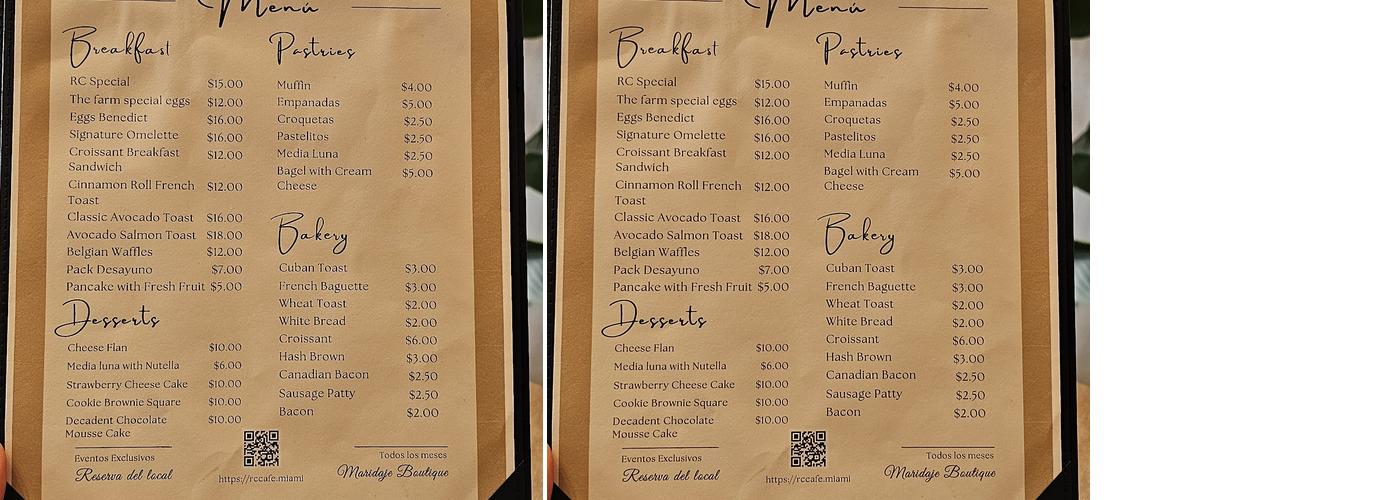 Menú
Breakfast
RC Special $15.00
The farm special eggs $12.00
Eggs Benedict $16.00
Signature Omelette $16.00
Croissant Breakfast $12.00
Sandwich
Cinnamon Roll French $12.00
Toast
Classic Avocado Toast $16.00
Avocado Salmon Toast $18.00
Belgian Waffles $12.00
Pack Desayuno $7.00
Pancake with Fresh Fruit $5.00
Desserts
Cheese Flan $10.00
Media luna with Nutella $6.00
Strawberry Cheese Cake $10.00
Cookie Brownie Square $10.00
Decadent Chocolate $10.00
Mousse Cake
Eventos Exclusivos
Reserva del local
Pastries
Muffin $4.00
Empanadas $5.00
Croquetas $2.50
Pastelitos $2.50
Media Luna $2.50
Bagel with Cream $5.00
Cheese
Bakery
Cuban Toast $3.00
French Baguette $3.00
Wheat Toast $2.00
White Bread $2.00
Croissant $6.00
Hash Brown $3.00
Canadian Bacon $2.50
Sausage Patty $2.50
Bacon $2.00
https://rccafe.miami
Todos los meses
Maridaje Boutique
Menú
Breakfast
RC Special $15.00
The farm special eggs $12.00
Eggs Benedict $16.00
Signature Omelette $16.00
Croissant Breakfast $12.00
Sandwich
Cinnamon Roll French $12.00
Toast
Classic Avocado Toast $16.00
Avocado Salmon Toast $18.00
Belgian Waffles $12.00
Pack Desayuno $7.00
Pancake with Fresh Fruit $5.00
Desserts
Cheese Flan $10.00
Media luna with Nutella $6.00
Strawberry Cheese Cake $10.00
Cookie Brownie Square $10.00
Decadent Chocolate $10.00
Mousse Cake
Eventos Exclusivos
Reserva del local
Pastries
Muffin $4.00
Empanadas $5.00
Croquetas $2.50
Pastelitos $2.50
Media Luna $2.50
Bagel with Cream $5.00
Cheese
Bakery
Cuban Toast $3.00
French Baguette $3.00
Wheat Toast $2.00
White Bread $2.00
Croissant $6.00
Hash Brown $3.00
Canadian Bacon $2.50
Sausage Patty $2.50
Bacon $2.00
https://rccafe.miami
Todos los meses
Maridaje Boutique